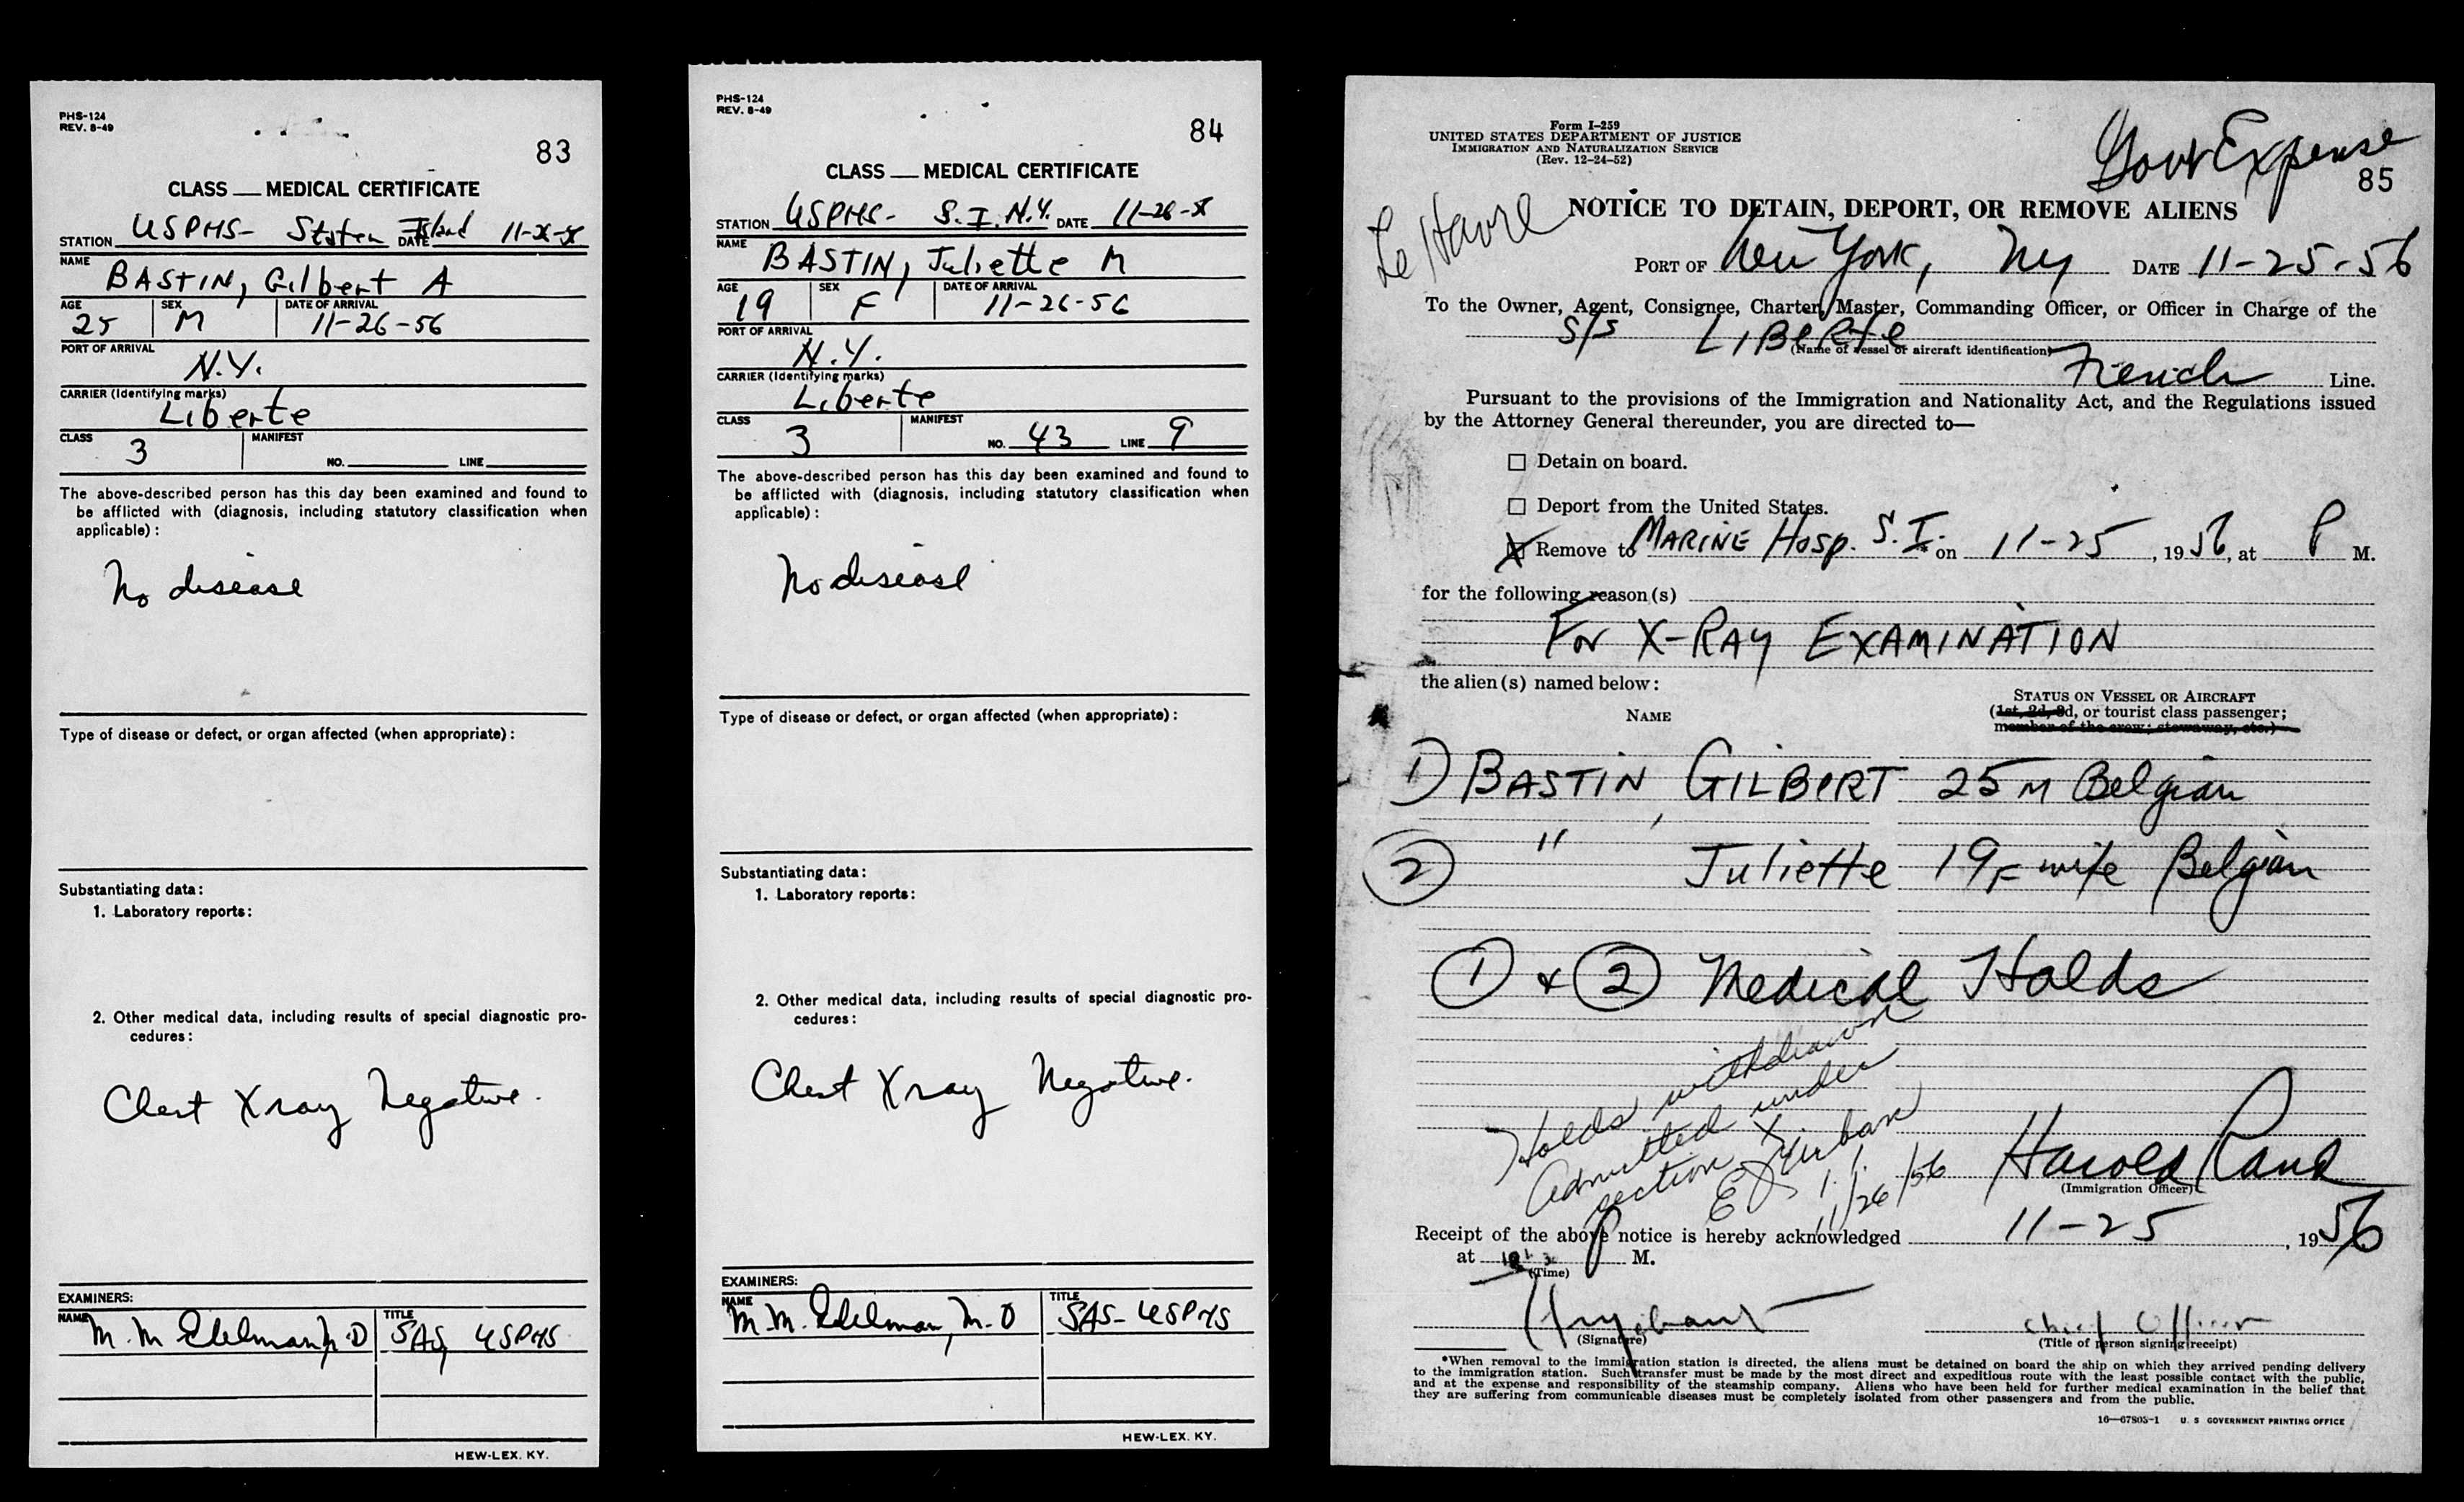 PHS-124
REV. 8-49
83
CLASS ___ MEDICAL CERTIFICATE
STATION USPHS- Staten Island DATE
NAME
BASTIN, Gilbert A
AGE SEX DATE OF ARRIVAL
25 M 11-26-56
PORT OF ARRIVAL
N.Y.
CARRIER (Identifying marks)
Liberte
CLASS MANIFEST
3 NO. LINE
The above-described person has this day been examined and found to
be afflicted with (diagnosis, including statutory classification when
applicable):
No disease
Type of disease or defect, or organ affected (when appropriate):
Substantiating data:
1. Laboratory reports:
2. Other medical data, including results of special diagnostic pro-
cedures:
Chest Xray Negative.
EXAMINERS:
NAME TITLE
M. M. Edelman, M.D SAS, USPHS
HEW-LEX. KY.
PHS-124
REV. 8-49
84
CLASS ___ MEDICAL CERTIFICATE
STATION USPHS- S.I. N.Y. DATE
NAME
BASTIN, Juliette M
AGE SEX DATE OF ARRIVAL
19 F 11-26-56
PORT OF ARRIVAL
N.Y.
CARRIER (Identifying marks)
Liberte
CLASS MANIFEST
3 NO. 43 LINE 9
The above-described person has this day been examined and found to
be afflicted with (diagnosis, including statutory classification when
applicable):
No disease
Type of disease or defect, or organ affected (when appropriate):
Substantiating data:
1. Laboratory reports:
2. Other medical data, including results of special diagnostic pro-
cedures:
Chest Xray Negative.
EXAMINERS:
NAME TITLE
M. M. Edelman, M.D SAS-USPHS
HEW-LEX. KY.
Form I-259
UNITED STATES DEPARTMENT OF JUSTICE
IMMIGRATION AND NATURALIZATION SERVICE
(Rev. 12-24-52)
Govt Expense
85
Le Havre
NOTICE TO DETAIN, DEPORT, OR REMOVE ALIENS
PORT OF New York, Ny DATE 11-25-56
To the Owner, Agent, Consignee, Charter, Master, Commanding Officer, or Officer in Charge of the
S/S LIBERTE
(Name of vessel or aircraft identification)
French Line.
Pursuant to the provisions of the Immigration and Nationality Act, and the Regulations issued
by the Attorney General thereunder, you are directed to—
☐ Detain on board.
☐ Deport from the United States.
☒ Remove to MARINE Hosp. S.I. on 11-25, 1956, at P M.
for the following reason(s)
For X-RAY EXAMINATION
the alien(s) named below:
NAME
STATUS ON VESSEL OR AIRCRAFT
(1st, 2d, 3d, or tourist class passenger;
member of the crew; stowaway, etc.)
1) BASTIN, GILBERT 25 M Belgian
2 " Juliette 19 F wife Belgian
1 & 2 Medical Holds
Holds withdrawn
Admitted under
section
11/26/56
Harold Rand
(Immigration Officer)
Receipt of the above notice is hereby acknowledged 11-25, 1956
at P M.
(Time)
(Signature)
Chief Officer
(Title of person signing receipt)
*When removal to the immigration station is directed, the aliens must be detained on board the ship on which they arrived pending delivery
to the immigration station. Such transfer must be made by the most direct and expeditious route with the least possible contact with the public,
and at the expense and responsibility of the steamship company. Aliens who have been held for further medical examination in the belief that
they are suffering from communicable diseases must be completely isolated from other passengers and from the public.
16—67805-1 U. S GOVERNMENT PRINTING OFFICE